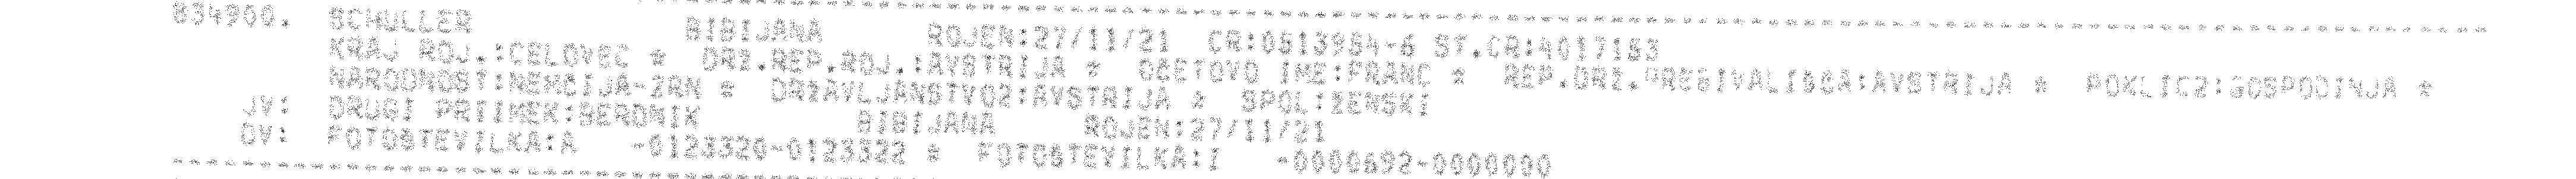 834900. SCHULLER BIBIJANA ROJEN:27/11/21 CR:0513954-6 ST.CR:4017153
KRAJ ROJ.:CELOVEC * DRZ.REP.ROJ.:AVSTRIJA * OCETOVO IME:FRANC * REP.DRZ.PREBIVALISCA:AVSTRIJA * POKLIC2:GOSPODINJA *
NARODNOST:NEMCIJA-ZRN * DRZAVLJANSTVO2:AVSTRIJA * SPOL:ZENSKI
JV: DRUGI PRIIMEK:BERDNIK BIBIJANA ROJEN:27/11/21
OV: FOTOSTEVILKA:A -0123320-0123322 * FOTOSTEVILKA:I -0000692-0000000